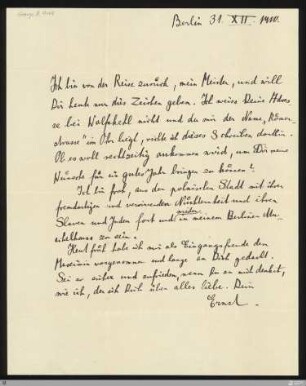 Berlin 31. XII. 1910.
Ich bin von der Reise zurück, mein Meister, und will
Dir heute nur dies Zeichen geben. Ich weiss Deine Adres-
se bei Wolfskehl nicht und da mir der Name „Römer-
strasse" im Ohr liegt, richte ich dieses Schreiben dorthin.
Ob es wohl rechtzeitig ankommen wird, um Dir meine
Wünsche für ein gutes Jahr bringen zu können?
Ich bin froh, aus der polnischen Stadt mit ihrer
fremdartigen und verwirrenden Nüchternheit und ihren
Slaven und Juden fort und wieder in meinem Berliner
zu sein.
Heut früh habe ich mir als Eingangspfende den
Maximin vorgenommen und lange an Dich gedacht.
Sei so sicher und zufrieden, wenn Du an mich denkst,
wie ich, der ich Dich über alles liebe. Dein
Ernst.